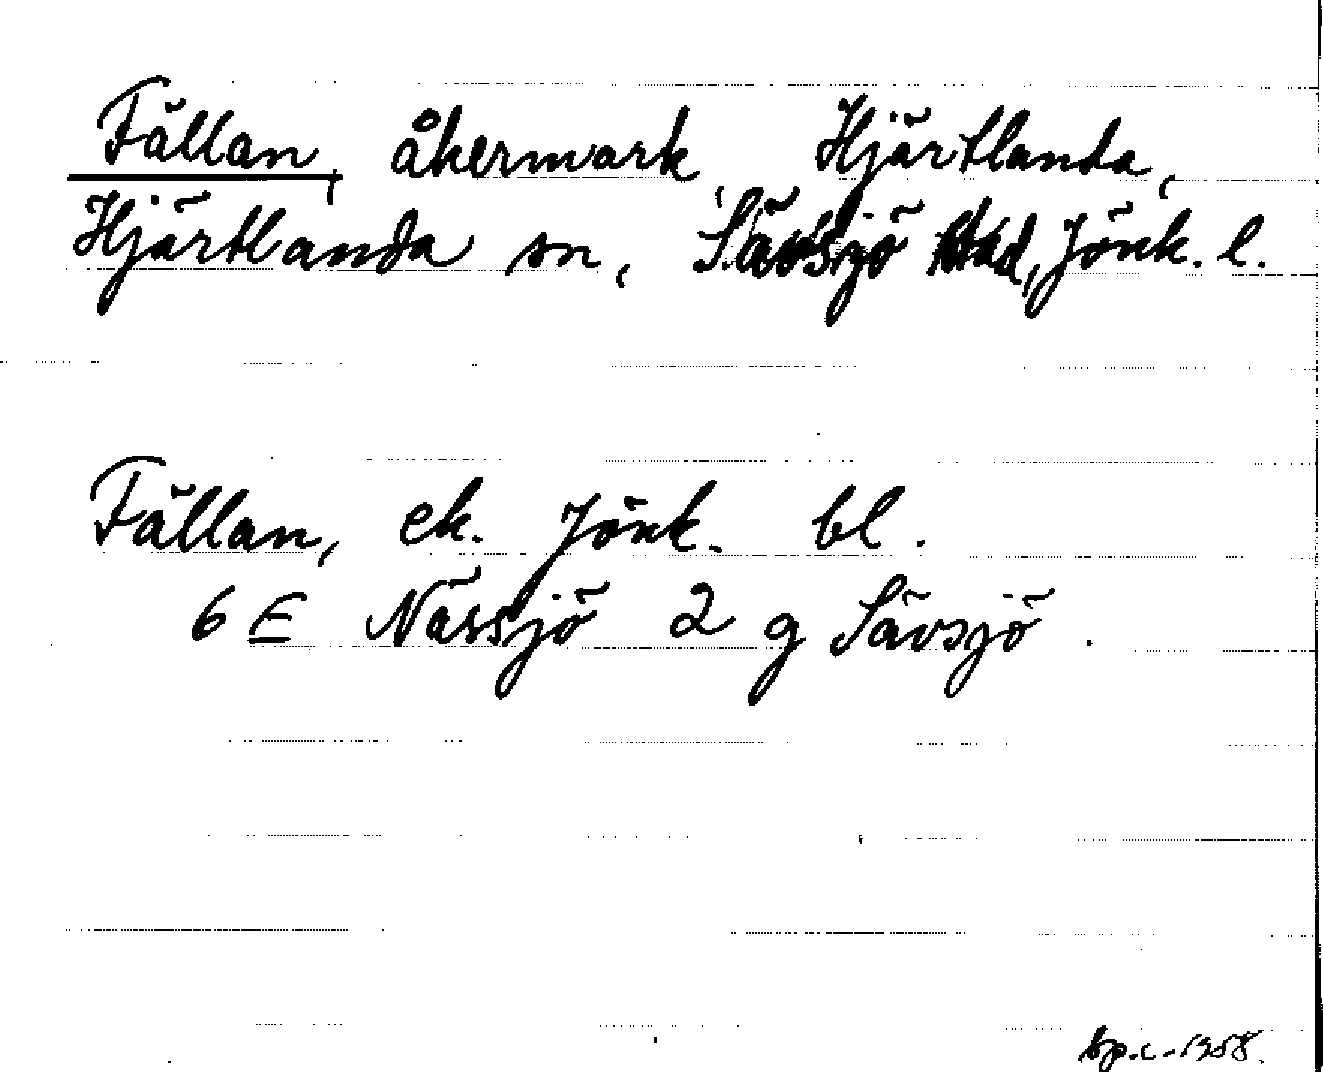 Fällan, åkermark, Hjärtlanda,
Hjärtlanda sn, Sävsjö stad, Jönk. l.
Fällan, ek. Jönk. bl.
6 E Nässjö 2 g Sävsjö.